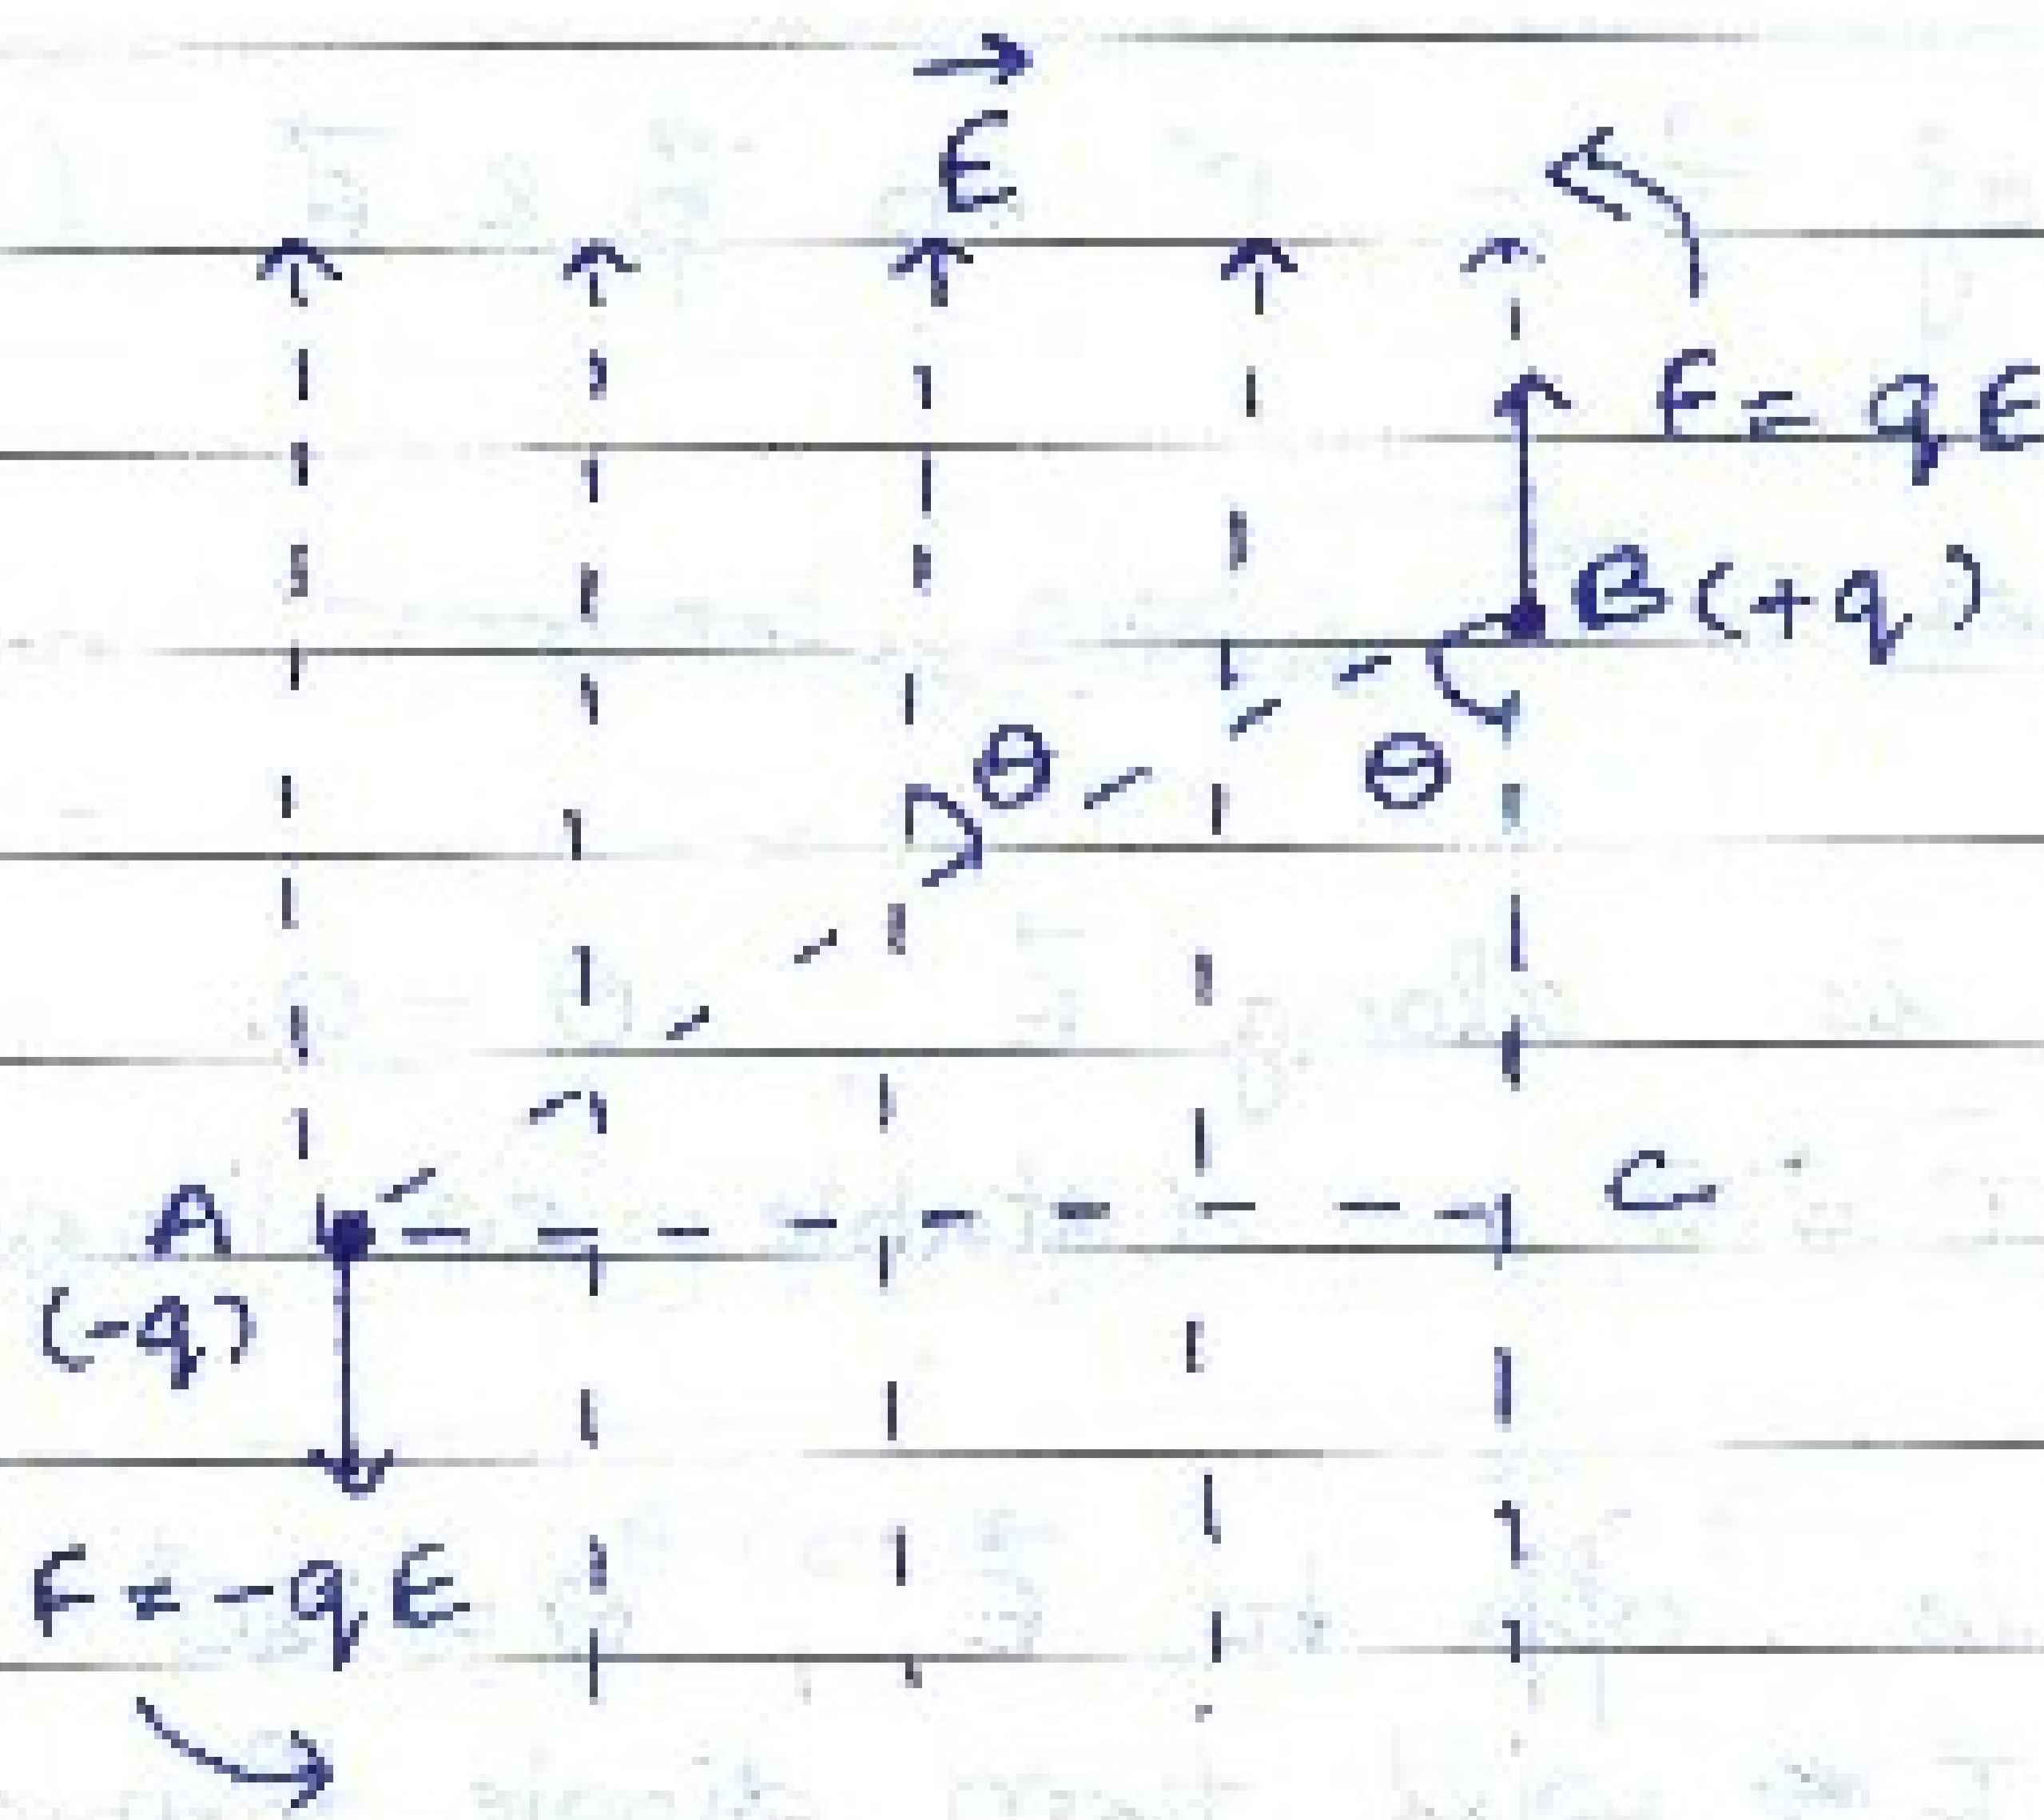 E
F = qE
B(+q)
θ
θ
A
C
(-q)
F = -qE